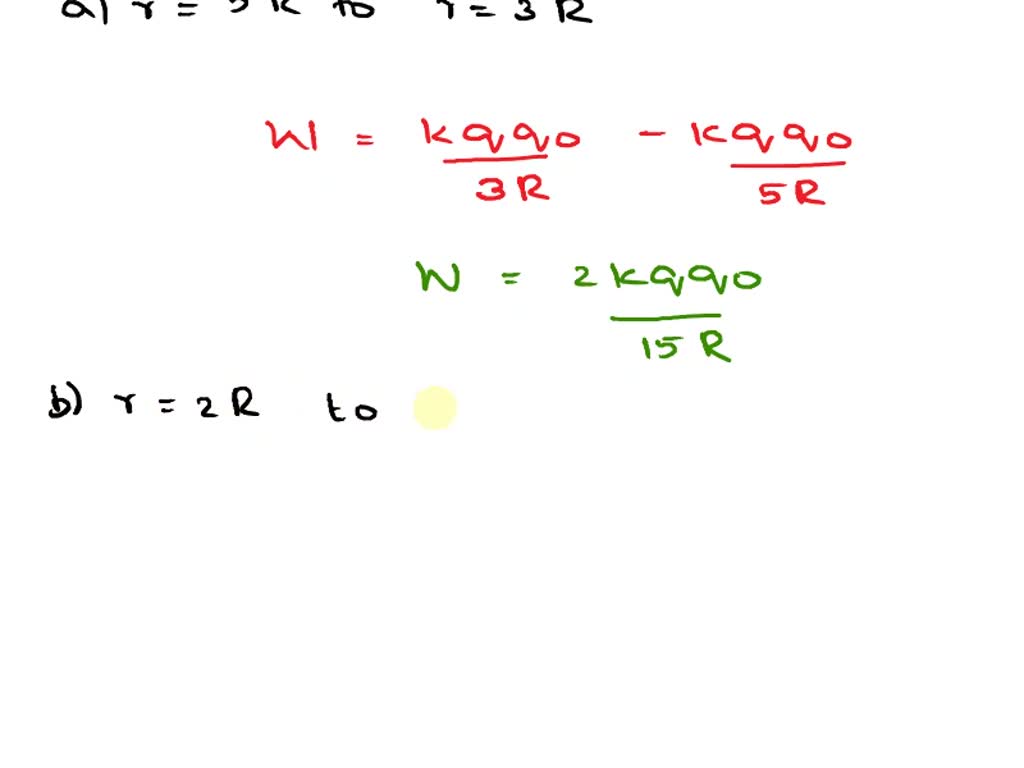 a) r = 5R to r = 3R
W = kqq0 - kqq0
3R 5R
W = 2kqq0
15 R
b) r = 2R to